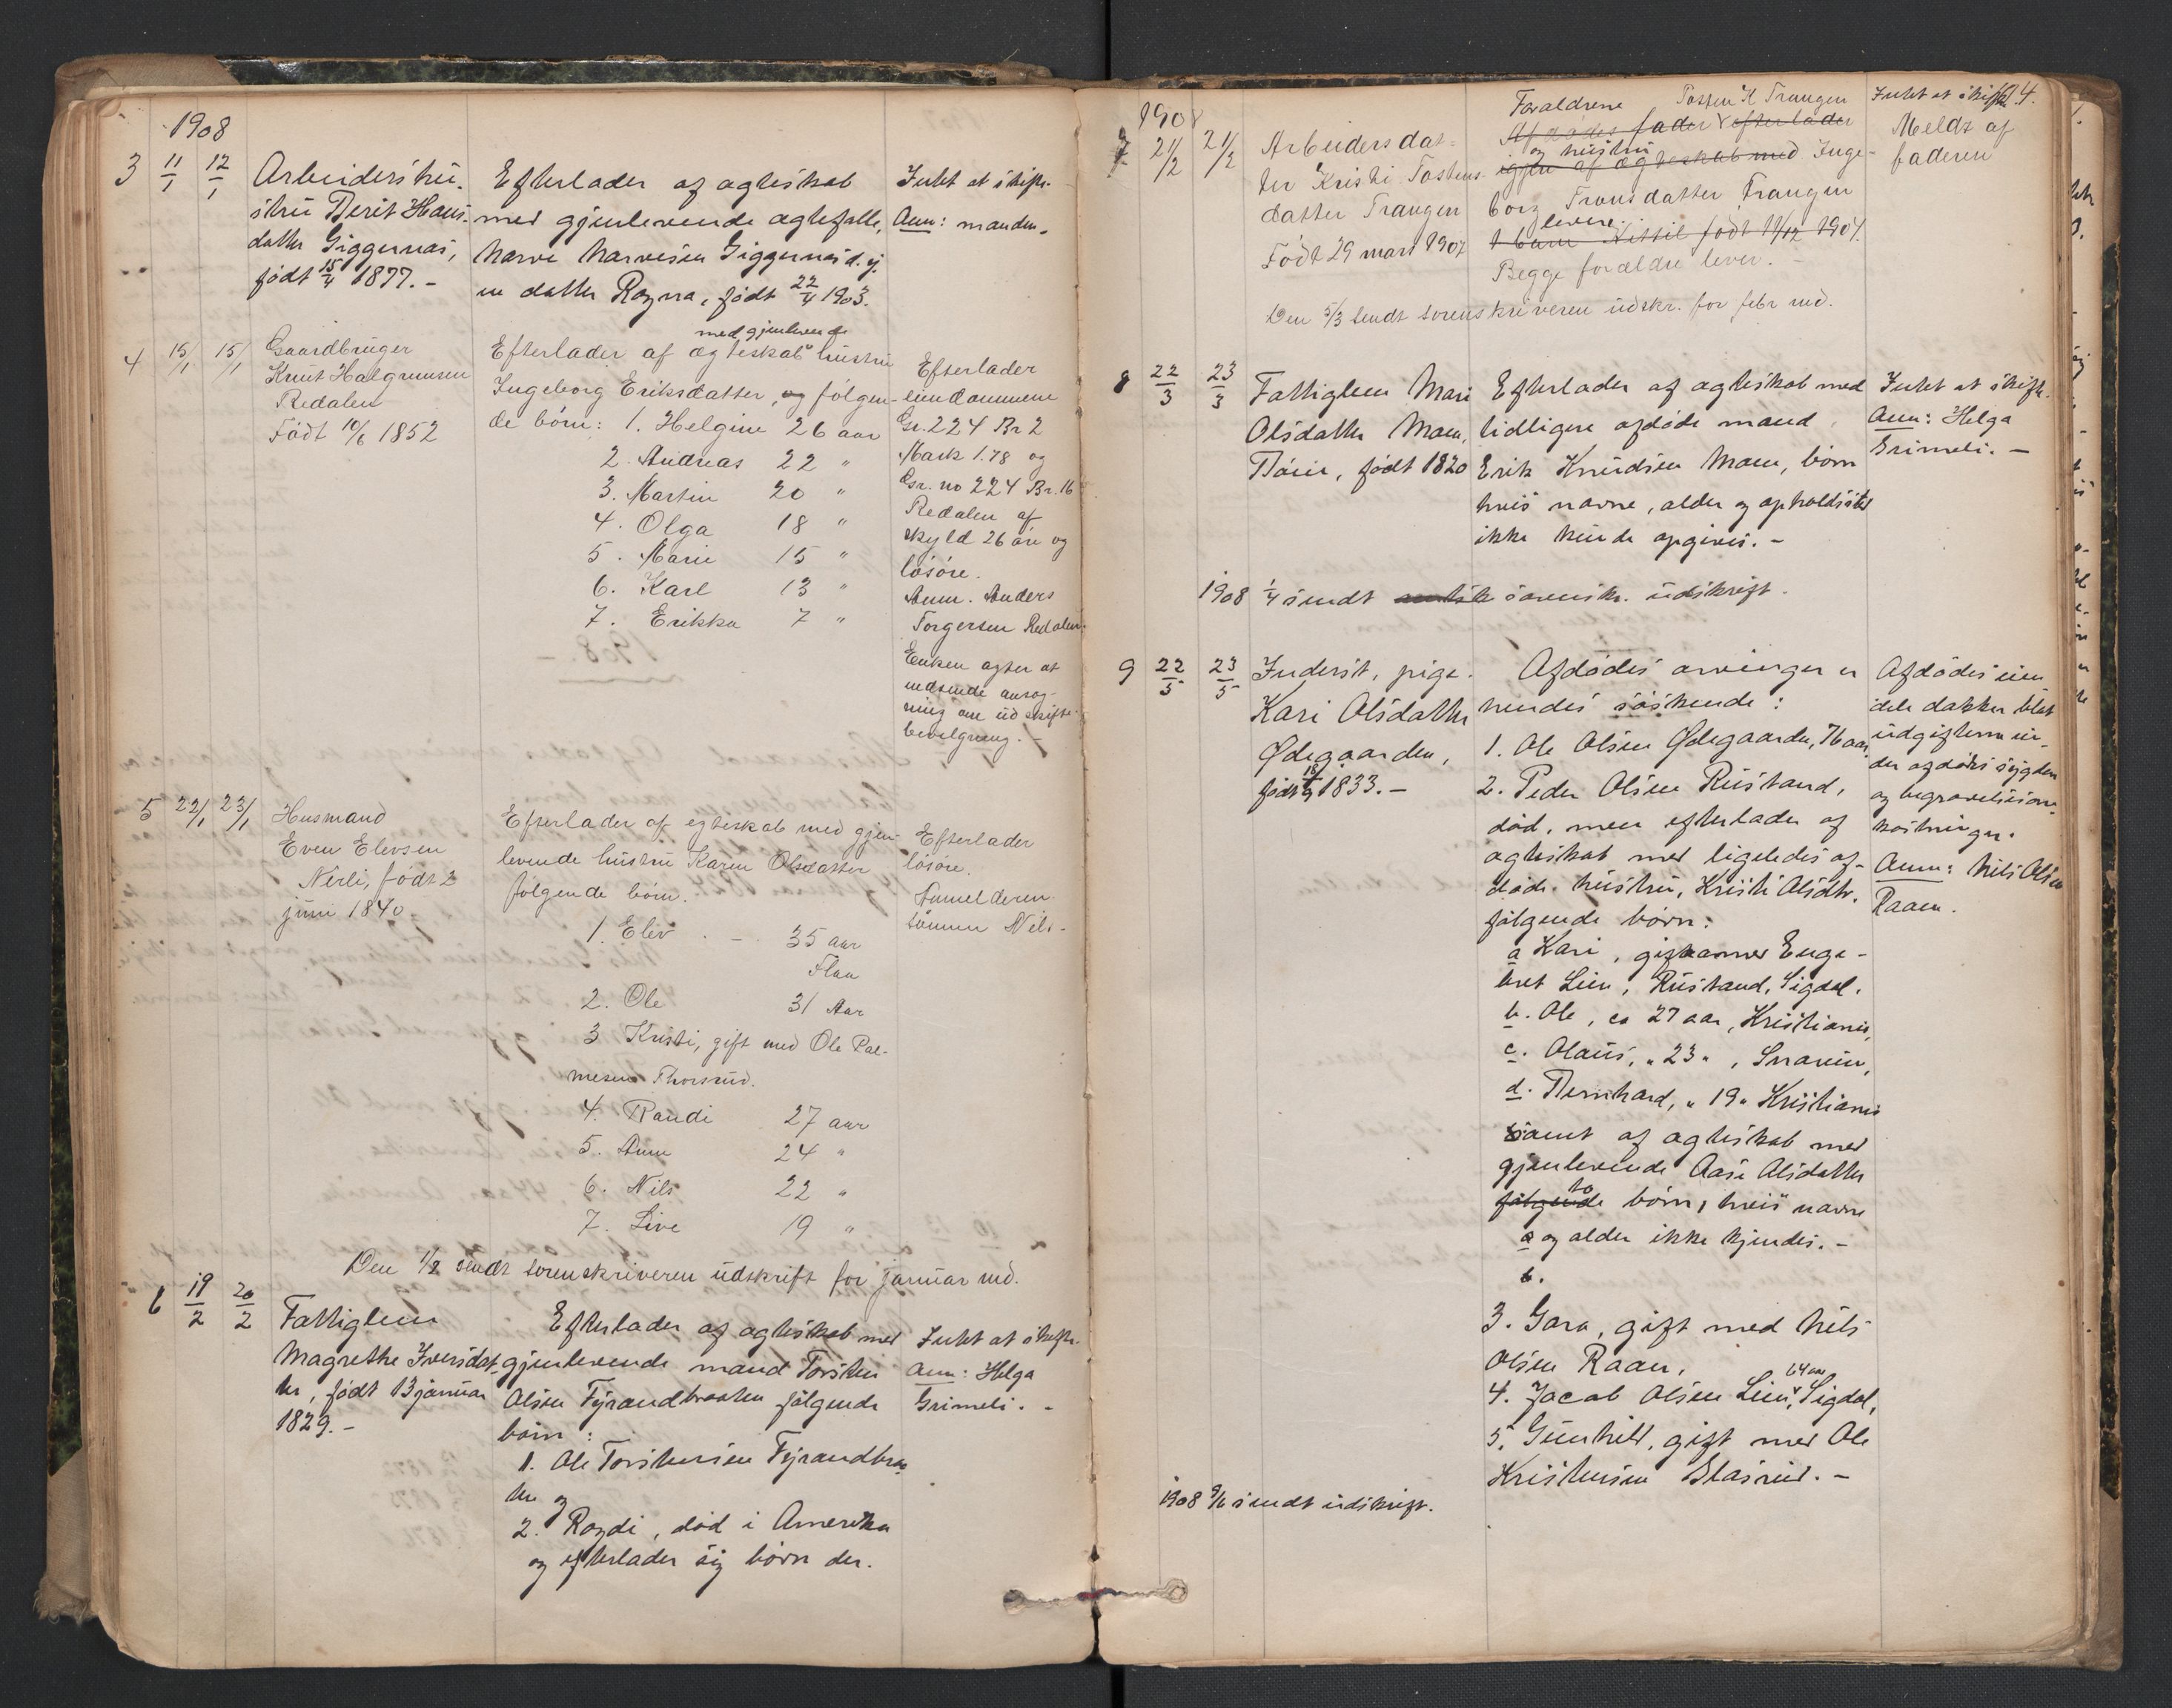 1908
3 11/1 12/1
Arbeidershu-
stru Berit Hans-
datter Giggernæs,
født 15/4 1877. -
Efterlader af ægteskab
med gjenlevende ægtefælle,
Narve Narvesen Giggernæs d. y.
en datter Ragna, født 22/4 1903.
Intet at skifte.
Anm: manden.
4 15/1 15/1
Gaardbruger
Knut Halgrimsen
Redalen
Født 10/6 1852
med gjenlevende
Efterlader af ægteskab hustru
Ingeborg Eriksdatter, og følgen-
de børn: 1. Helgine 26 aar
2. Andreas 22 "
3. Martin 20 "
4. Olga 18 "
5. Marie 15 "
6. Karl 13 "
7. Erikka 7 "
Efterlader
eiendommene
Gr. 224 Br 2
Mark 1.78 og
Gr. no 224 Br. 16
Redalen af
skyld 26 øre og
løsøre.
Anm. Anders
Torgersen Redalen.
Enken agter at
indsende ansøg-
ning om uskifte-
bevilgning. -
5 22/1 23/1
Husmand
Even Elevsen
Nerli, født 2
juni 1840.
Efterlader af egteskab med gjen-
levende hustru Karen Olsdatter
følgende børn.
1. Elev - 35 aar
Flaa
2. Ole 31 Aar
3 Kristi, gift med Ole Pal-
mesen Thorsrud.
4. Randi 27 aar
5. Anne 24 "
6. Nils 22 "
7. Live 19 "
Efterlader
løsøre.
Anmelderen
sønnen Nils -
Den 1/2 sendt sorenskriveren udskrift for januar md.
6 19/2 20/2
Fattiglem
Magrethe Iversdat-
ter, født 13 januar
1829. -
Efterlader af ægteskab med
gjenlevende mand Torsten
Olsen Fyrandbraaten følgende
børn:
1. Ole Torstensen Fyrandbraa-
ten og
2. Ragdi, død i Amerika
og efterlader sig børn der.
Intet at skifte.
Anm: Helga
Grimeli. -
1908
4.
7 21/2 21/2
Arbeidersdat-
ter Kristi Tostens-
datter Trangen
Født 29 mars 1907
Forældrene Tosten K Trangen
Afdødes fader efterlader
og hustru
igjen af ægteskab med Inge-
borg Tronsdatter Trangen
lever.
1 barn Kittil født 11/12 1901.
Begge forældre lever. -
Intet at skifte
Meldt af
faderen
Den 3/3 sendt sorenskriveren udskr. for febr md.
8 22/3 23/3
Fattiglem Mari
Olsdatter Moen,
født 1820
Efterlader af ægteskab med
tidligere afdøde mand
Erik Knudsen Moen, børn
hvis navne, alder og opholdssted
ikke kunde opgives. -
Intet at skifte.
Anm: Helga
Grimeli. -
1908 1/4 sendt sorensk. udskrift.
9 22/5 23/5
Inderst, pige
Kari Olsdatter
Ødegaarden,
født 18/9 1833. -
Afdødes arvinger er
hendes søskende:
1. Ole Olsen Ødegaarden, 76 aar
2. Peder Olsen Rustand,
død, men efterlader af
ægteskab med ligeledes af-
døde hustru, Kristi Olsdtr.
følgende børn:
a Kari, gift med Enge-
bret Lien, Rustand, Sigdal.
b. Ole, ca 27 aar, Kristiania,
c. Olaus, " 23 ", Snarum,
d. Bernhard, " 19 " Kristiania
samt af ægteskab med
gjenlevende Aase Olsdatter
to
følgende børn, hvis navne
a og alder ikke kjendes. -
b.
3. Goro, gift med Nils
Olsen Raaen,
64 aar
4. Jacob Olsen Lien, Sigdal,
5. Gunhild, gift med Ole
Kristensen Glasrud. -
Afdødes eien-
dele dækker blot
udgifterne un-
der afdødes sygdom
og begravelsesom-
kostninger.
Anm: Nils Olsen
Raaen.
1908 9/6 sendt udskrift.